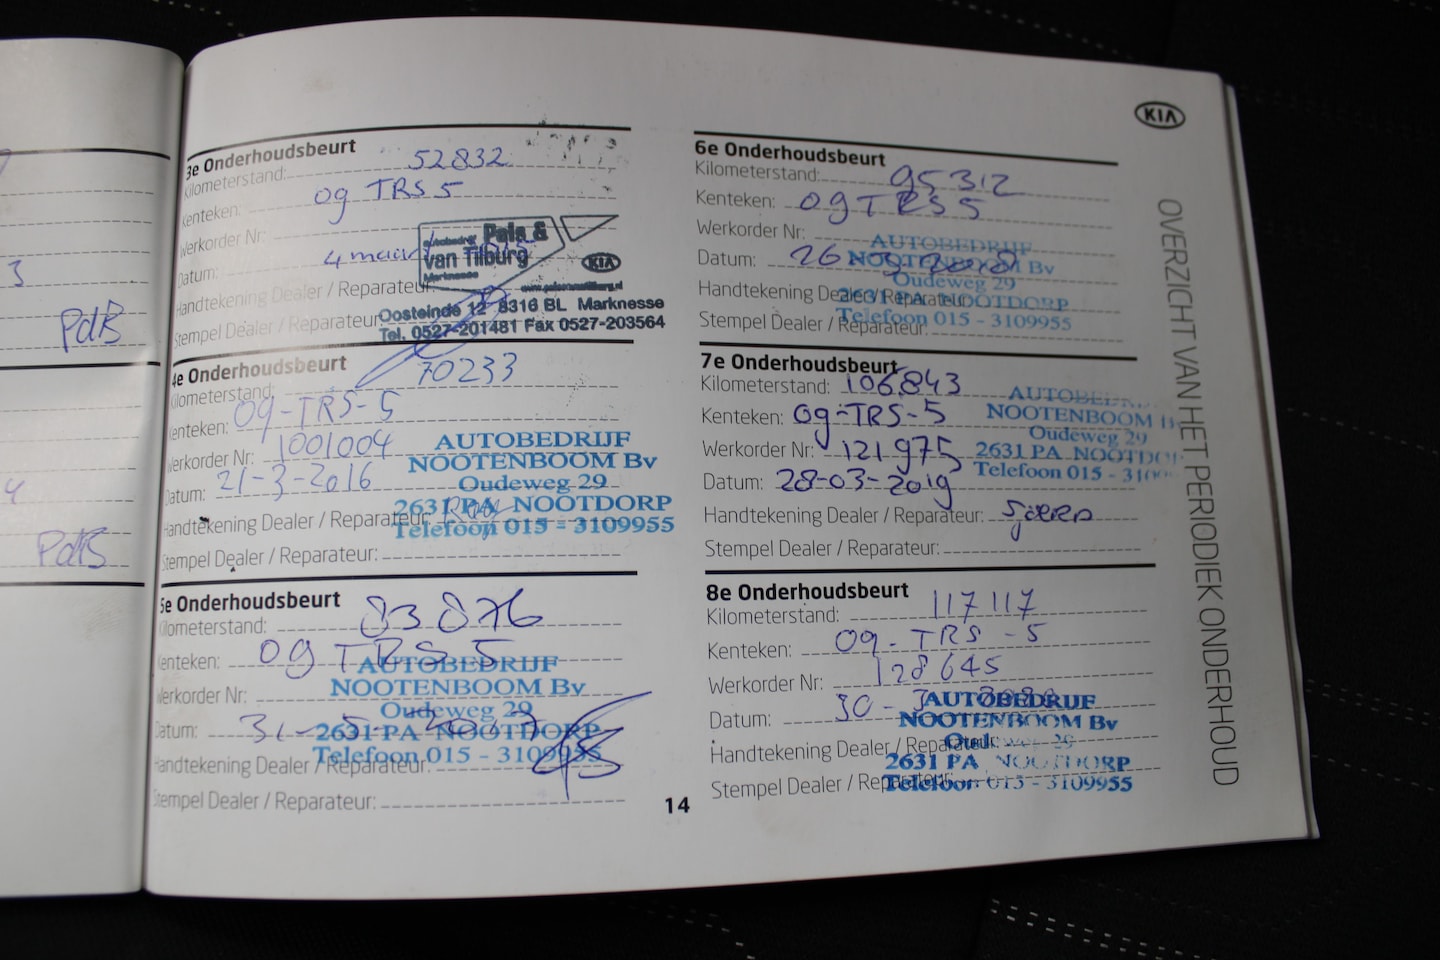 3
PdB
4
PdB
3e Onderhoudsbeurt
Kilometerstand: 52832
Kenteken: 09 TRS 5
Werkorder Nr:
Datum: 4 maart
Handtekening Dealer / Reparateur:
Stempel Dealer / Reparateur:
autobedrijf Pels &
van Tilburg
Marknesse
KIA
Oosteinde 12 8316 BL Marknesse
Tel. 0527-201481 Fax 0527-203564
4e Onderhoudsbeurt
Kilometerstand: 70233
Kenteken: 09-TRS-5
Werkorder Nr: 1001004
Datum: 21-3-2016
Handtekening Dealer / Reparateur:
Stempel Dealer / Reparateur:
AUTOBEDRIJF
NOOTENBOOM Bv
Oudeweg 29
2631 PA NOOTDORP
Telefoon 015 - 3109955
5e Onderhoudsbeurt
Kilometerstand: 83876
Kenteken: 09 TRS 5
Werkorder Nr:
Datum: 31-5-2017
Handtekening Dealer / Reparateur:
Stempel Dealer / Reparateur:
AUTOBEDRIJF
NOOTENBOOM Bv
Oudeweg 29
2631 PA NOOTDORP
Telefoon 015 - 3109955
14
KIA
6e Onderhoudsbeurt
Kilometerstand: 95312
Kenteken: 09 TRS 5
Werkorder Nr:
Datum: 26
Handtekening Dealer / Reparateur:
Stempel Dealer / Reparateur:
AUTOBEDRIJF
NOOTENBOOM Bv
Oudeweg 29
2631 PA NOOTDORP
Telefoon 015 - 3109955
7e Onderhoudsbeurt
Kilometerstand: 106.843
Kenteken: 09-TRS-5
Werkorder Nr: 121975
Datum: 28-03-2019
Handtekening Dealer / Reparateur: Sjoerd
Stempel Dealer / Reparateur:
AUTOBEDRIJF
NOOTENBOOM B
Oudeweg 29
2631 PA NOOTDOR
Telefoon 015 - 310
8e Onderhoudsbeurt
Kilometerstand: 117117
Kenteken: 09-TRS-5
Werkorder Nr: 128645
Datum: 30-3
Handtekening Dealer / Reparateur:
Stempel Dealer / Reparateur:
AUTOBEDRIJF
NOOTENBOOM Bv
Oudeweg 29
2631 PA NOOTDORP
Telefoon 015 - 3109955
OVERZICHT VAN HET PERIODIEK ONDERHOUD